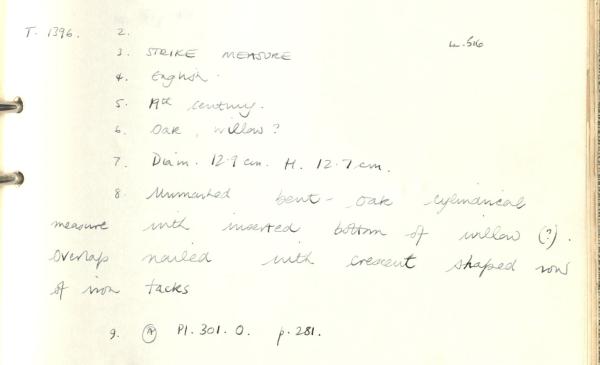 T. 1396. 2.
w.516
3. STRIKE MEASURE
4. English.
5. 19th century.
6. Oak, willow?
7. Diam. 12.9 cm. H. 12.7 cm.
8. Unmarked bent-oak cylindrical
measure with inserted bottom of willow (?).
Overlap nailed with crescent shaped row
of iron tacks
9. A Pl. 301. O. p. 281.